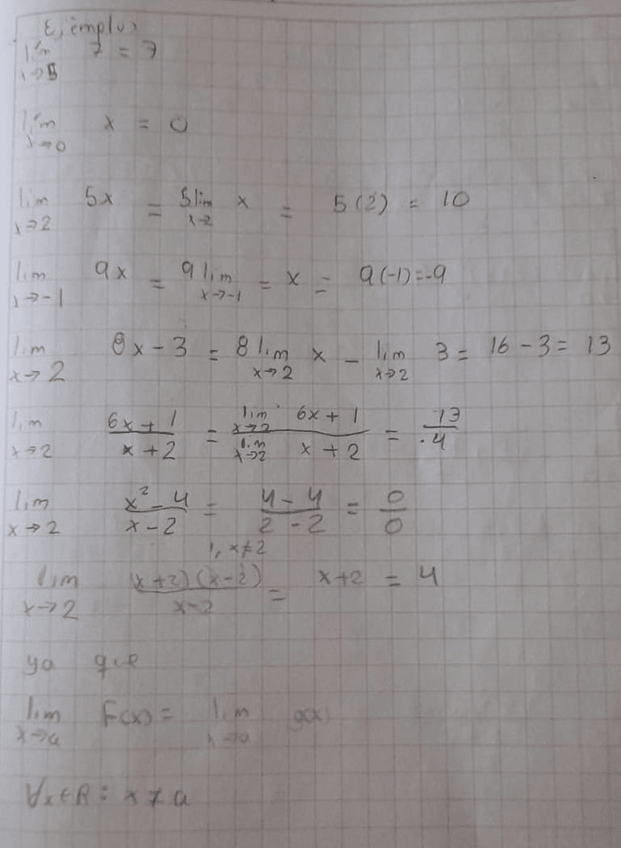 Ejemplos
lím x→5 7 = 7
lím x→0 x = 0
lim x→2 5x = 5 lim x→2 x = 5(2) = 10
lim x→-1 9x = 9 lim x→-1 = x = 9(-1)=-9
lim x→2 8x - 3 = 8 lim x→2 x - lim x→2 3 = 16 - 3 = 13
lim x→2 (6x + 1)/(x + 2) = (lim x→2 6x + 1)/(lim x→2 x + 2) = 13/4
lim x→2 (x² - 4)/(x - 2) = (4 - 4)/(2 - 2) = 0/0
1, x≠2
lim x→2 (x+2)(x-2)/(x-2) = x+2 = 4
ya que
lim x→a F(x) = lim x→a g(x)
∀x∈R : x ≠ a